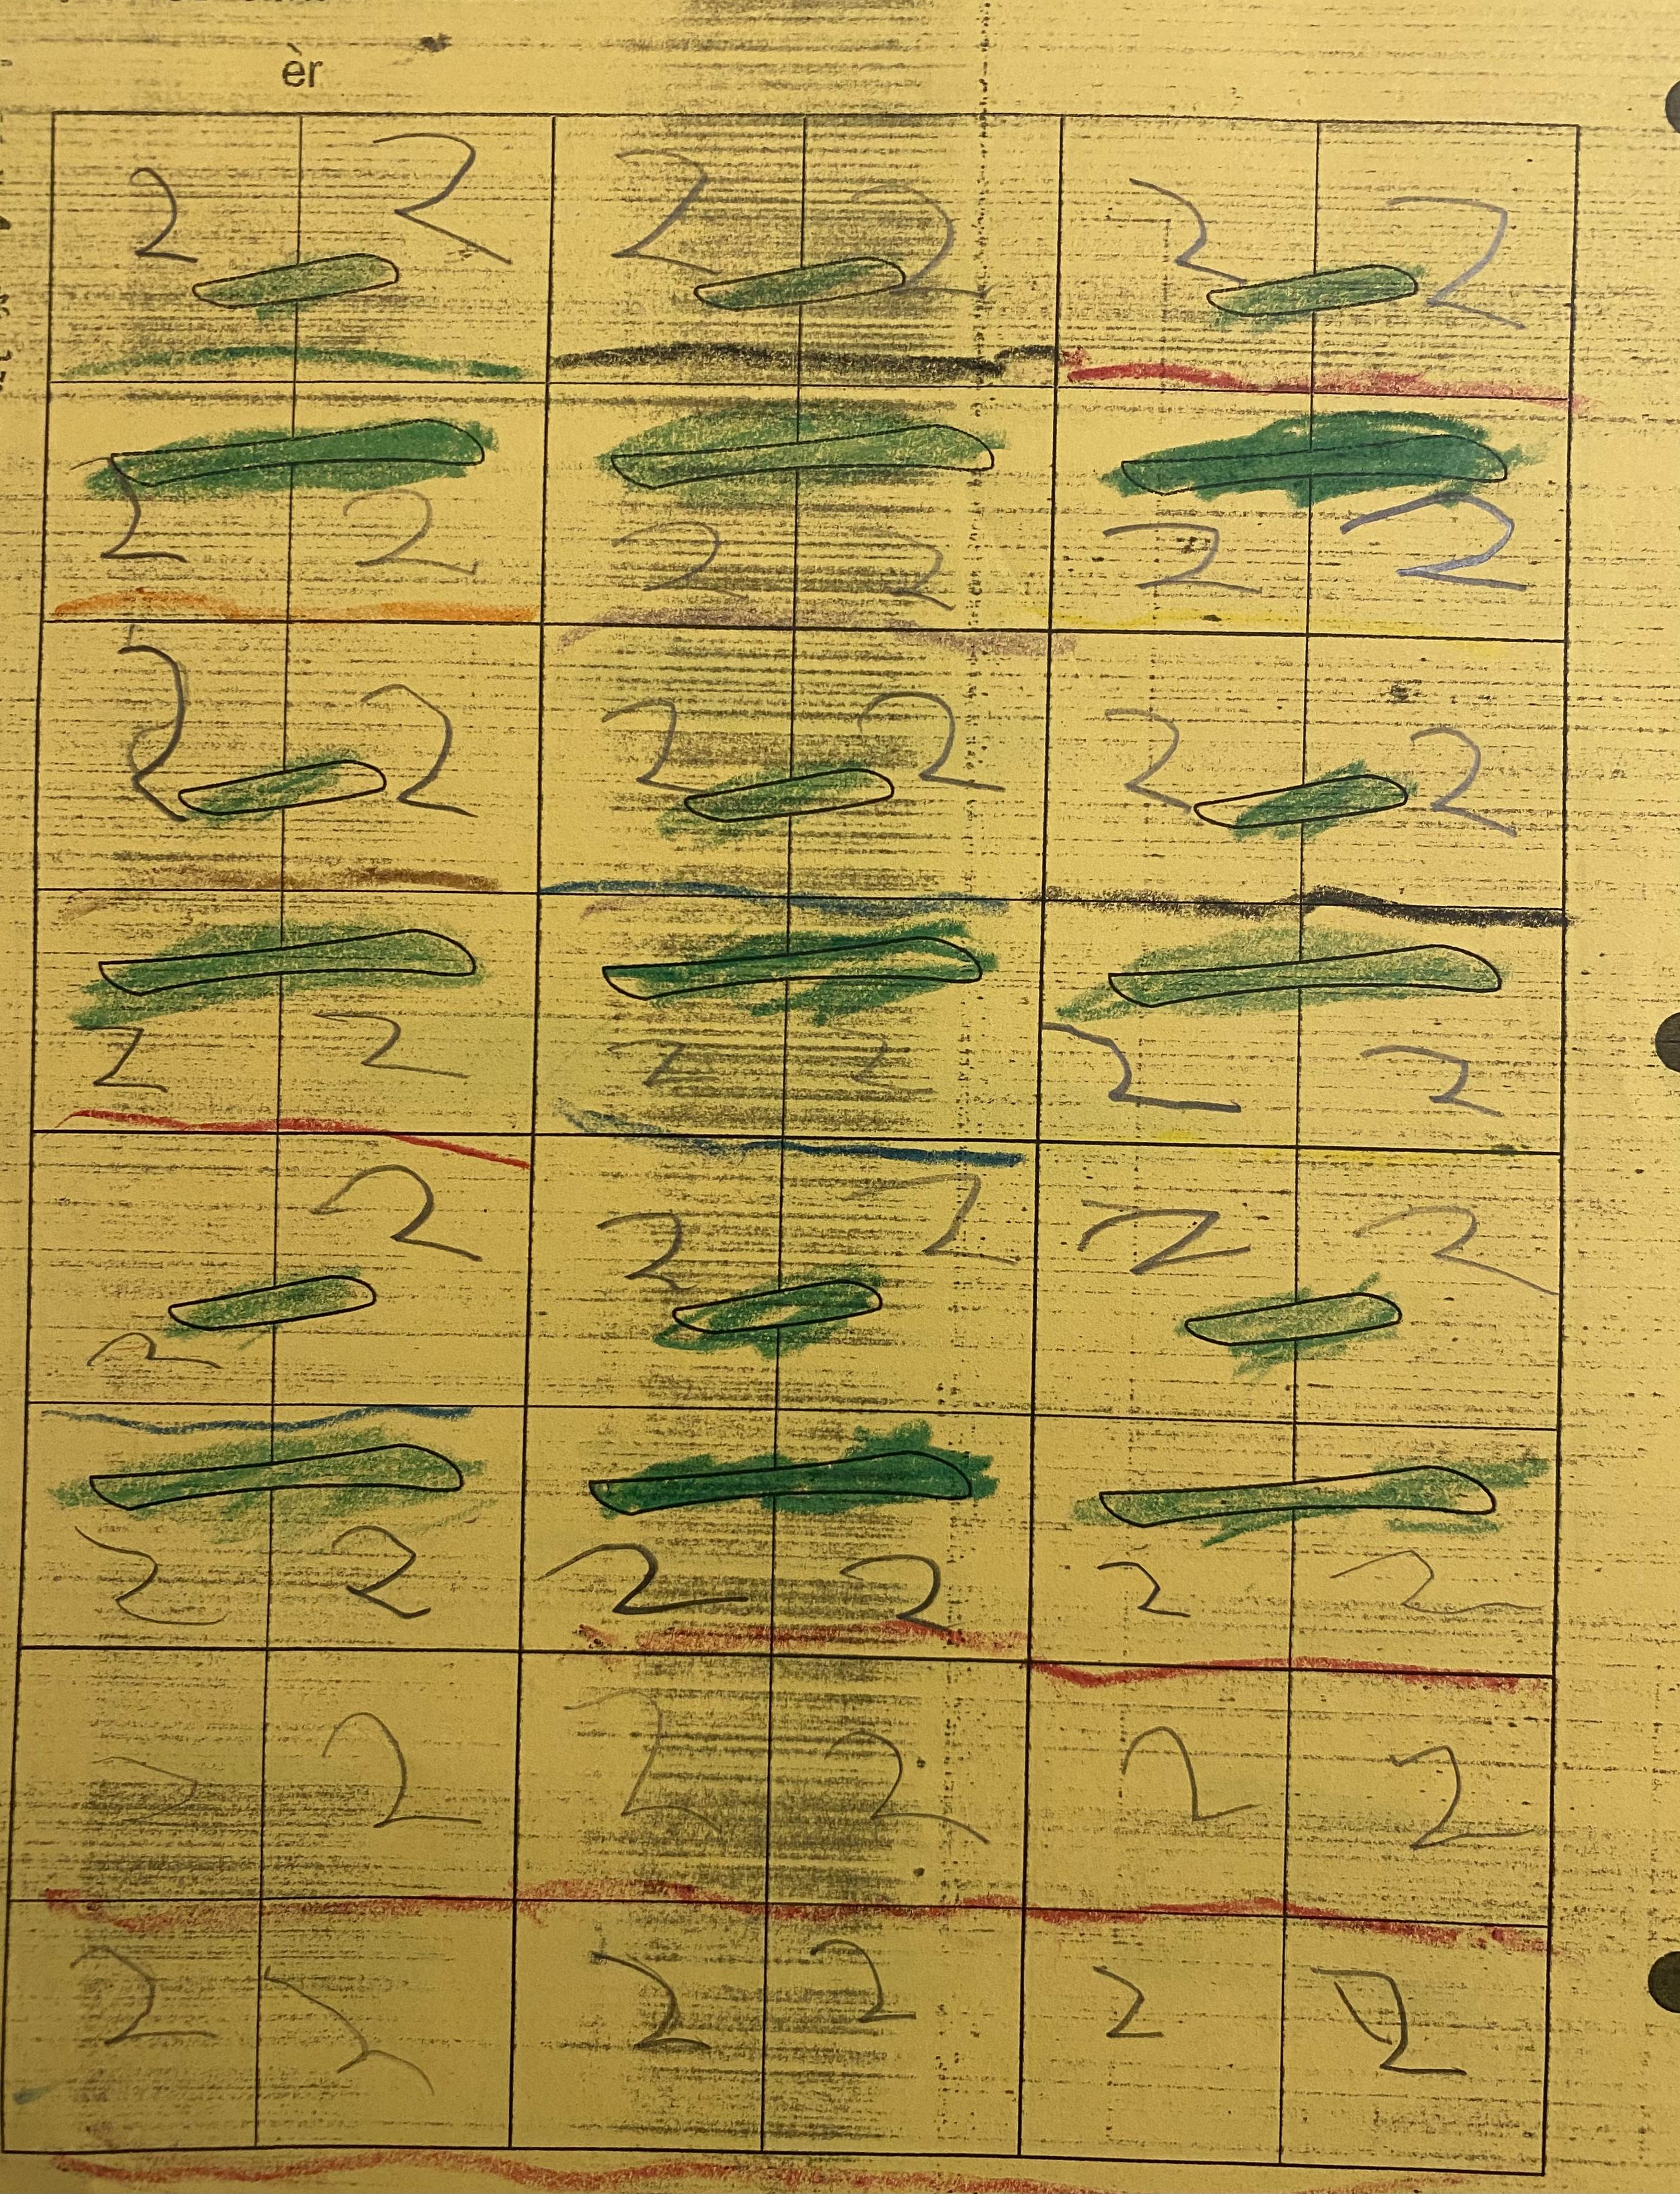 èr
2 2 2 2 2 2
二 二 二
2 2 2 2 2 2
2 2 2 2 2 2
二 二 二
2 2 2 2 2 2
2 2 2 2 2 2
二 二 二
2 2 2 2 2 2
2 2 2 2 2 2
2 2 2 2 2 2